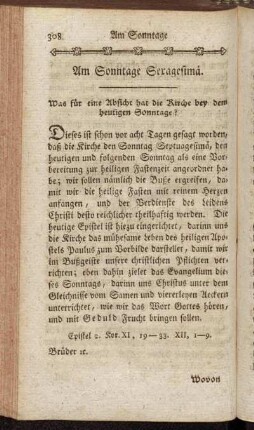 308 Am Sonntage
Am Sonntage Sexagesimä.
Was für eine Absicht hat die Kirche bey dem
heutigen Sonntage?
Dieses ist schon vor acht Tagen gesagt worden,
daß die Kirche den Sonntag Septuagesimä, den
heutigen und folgenden Sonntag als eine Vor-
bereitung zur heiligen Fastenzeit angeordnet ha-
be; wir sollen nämlich die Buße ergreifen, da-
mit wir die heilige Fasten mit reinem Herzen
anfangen, und der Verdienste des leidens
Christi desto reichlicher theilhaftig werden. Die
heutige Epistel ist hiezu eingerichtet, darinn uns
die Kirche das mühesame leben des heiligen Apo-
stels Paulus zum Vorbilde darstellet, damit wir
im Bußgeiste unsere christlichen Pflichten ver-
richten; eben dahin zielet das Evangelium die-
ses Sonntags, darinn uns Christus unter dem
Gleichnisse vom Samen und viererleyen Aeckern
unterrichtet, wie wir das Wort Gottes hören,
und mit Geduld Frucht bringen sollen.
Epistel 2. Kor. XI, 19–33. XII, 1–9.
Brüder ꝛc.
Wovon